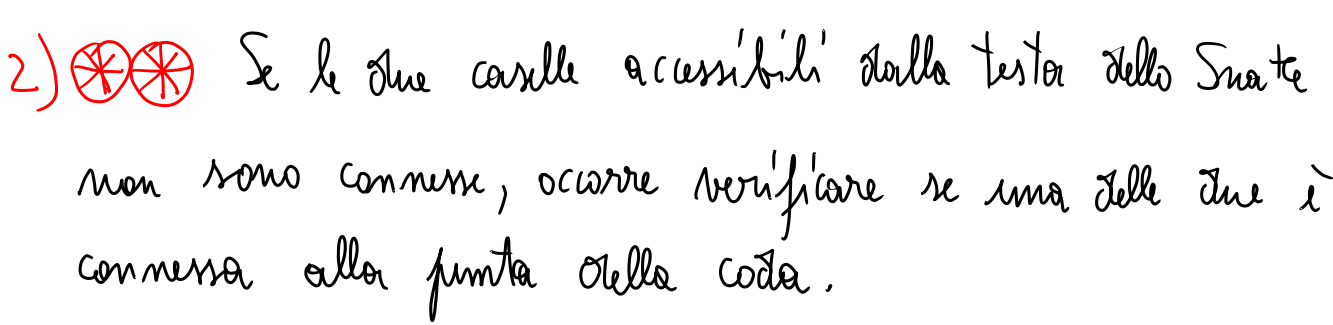 2) ⊛⊛ Se le due caselle accessibili dalla testa dello Snake
non sono connesse, occorre verificare se una delle due è
connessa alla punta della coda.